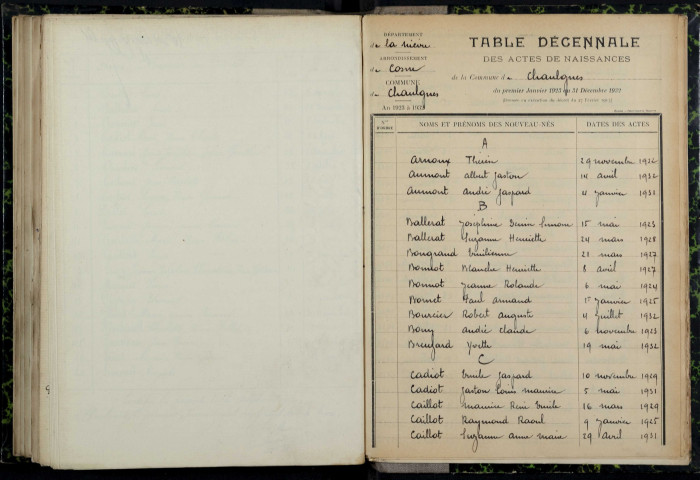 DÉPARTEMENT
de la nièvre
ARRONDISSEMENT
de Cosne
COMMUNE
de Chaulgnes
An 1923 à 1932
TABLE DÉCENNALE
DES ACTES DE NAISSANCES
de la Commune de Chaulgnes
du premier Janvier 1923 au 31 Décembre 1932
Nos D'ORDRE
NOMS ET PRÉNOMS DES NOUVEAU-NÉS
DATES DES ACTES
A
Arnoux 29 novembre 1926
Aumont albert gaston 14 avril 1932
Aumont andré gaspard 4 janvier 1933
B
Ballerat Joséphine Simone 15 mai 1923
Ballerat Suzanne Henriette 24 mars 1928
Bongrand Emilienne 21 mars 1927
Bonnot Blanche Henriette 8 avril 1927
Bonnot Jeanne Rolande 6 mai 1924
Bornet Paul armand 1er janvier 1925
Bourcier Robert auguste 4 juillet 1932
Bouy andré claude 6 novembre 1923
Yvette 19 mai 1932
C
Cadiot Emile gaspard 10 novembre 1929
Cadiot gaston Louis maurice 5 mai 1931
Caillot maurice René Emile 16 mars 1929
Caillot Raymond Raoul 9 janvier 1925
Caillot Suzanne anne marie 29 avril 1931